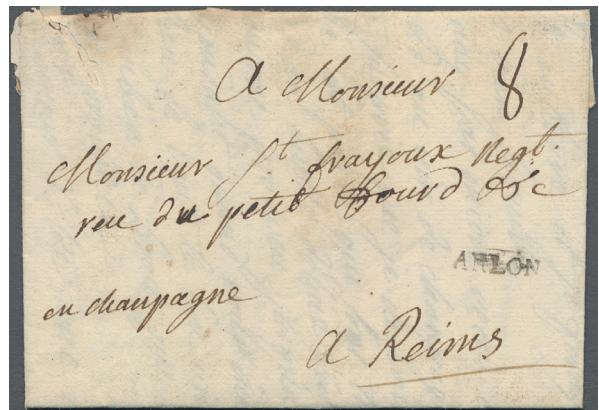 A Monsieur 8
Monsieur St frayoux Negt.
reu du petit Bourd &c
ARLON
en chaupagne
a Reims